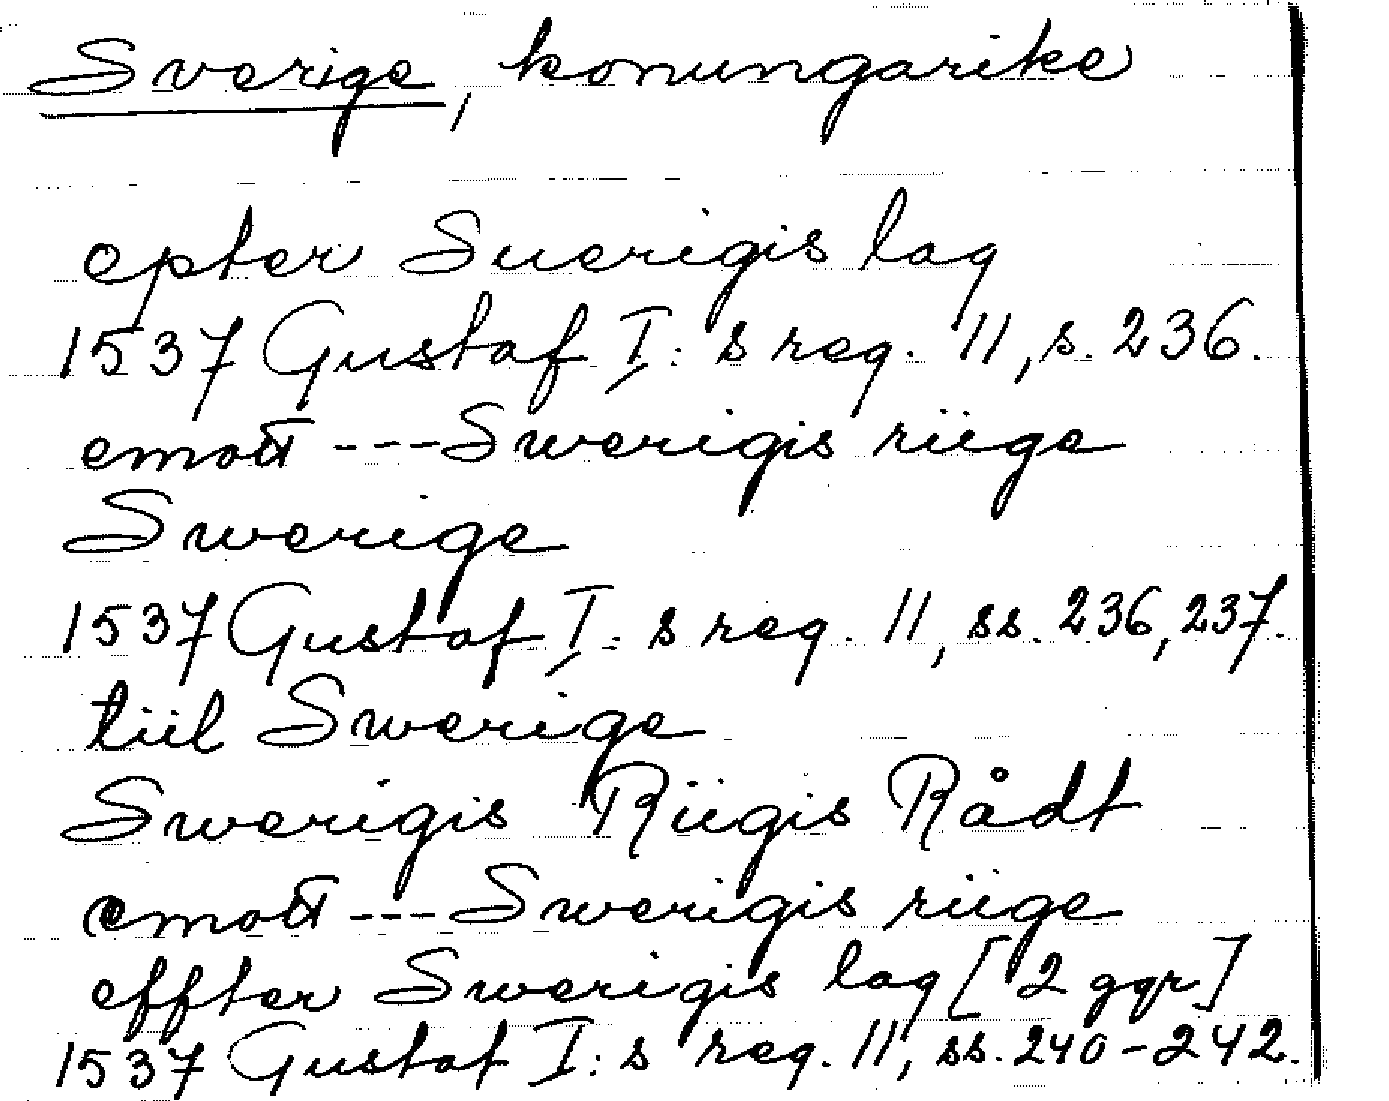 Sverige, konungarike
epter Suerigis lag
1537 Gustaf I:s reg. 11, s. 236.
emott --- Swerigis riige
Swerige
1537 Gustaf I:s reg. 11, ss. 236, 237.
tiil Swerige
Swerigis Riigis Rådt
emott --- Swerigis riige
effter Swerigis lag [2 ggr]
1537 Gustaf I:s reg. 11, ss. 240-242.